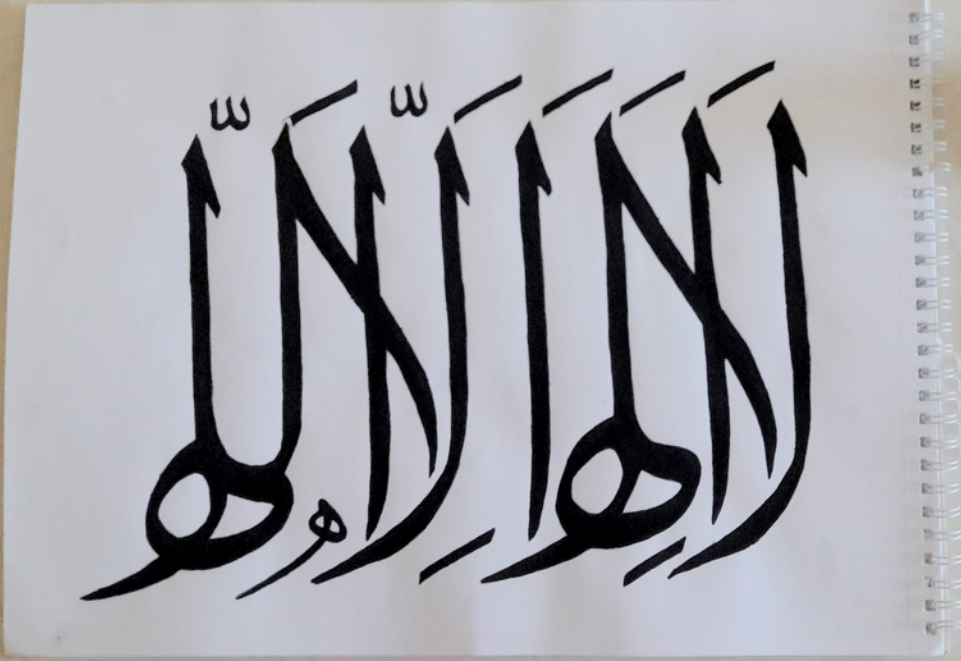 لَا إِلَهَ إِلَّا اللّه